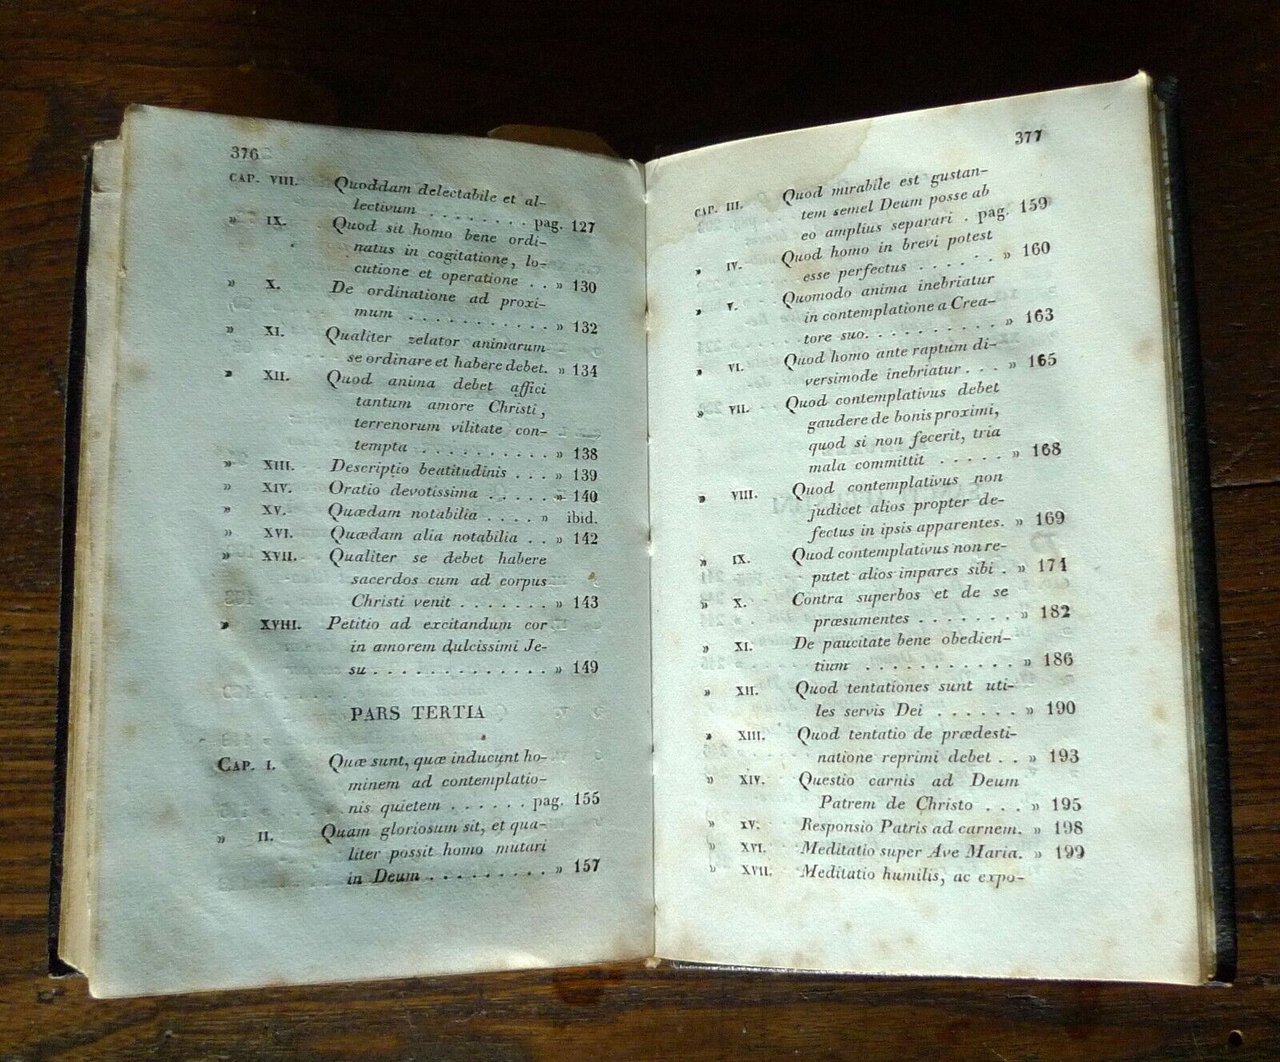 376
CAP. VIII. Quoddam delectabile et al-
lectivum . . . . . . . . pag. 127
» IX. Quod sit homo bene ordi-
natus in cogitatione, lo-
cutione et operatione . . » 130
» X. De ordinatione ad proxi-
mum . . . . . . . . . . . » 132
» XI. Qualiter zelator animarum
se ordinare et habere debet. » 134
» XII. Quod anima debet affici
tantum amore Christi,
terrenorum vilitate con-
tempta . . . . . . . . . . » 138
» XIII. Descriptio beatitudinis . . . » 139
» XIV. Oratio devotissima . . . . . » 140
» XV. Quædam notabilia . . . . » ibid.
» XVI. Quædam alia notabilia . . » 142
» XVII. Qualiter se debet habere
sacerdos cum ad corpus
Christi venit . . . . . . . » 143
» XVIII. Petitio ad excitandum cor
in amorem dulcissimi Je-
su . . . . . . . . . . . . . » 149
PARS TERTIA
CAP. I. Quæ sunt, quæ inducunt ho-
minem ad contemplatio-
nis quietem . . . . . . pag. 155
» II. Quam gloriosum sit, et qua-
liter possit homo mutari
in Deum . . . . . . . . . » 157
377
CAP. III. Quod mirabile est gustan-
tem semel Deum posse ab
eo amplius separari . pag. 159
» IV. Quod homo in brevi potest
esse perfectus . . . . . . » 160
» V. Quomodo anima inebriatur
in contemplatione a Crea-
tore suo. . . . . . . . . . » 163
» VI. Quod homo ante raptum di-
versimode inebriatur . . . » 165
» VII. Quod contemplativus debet
gaudere de bonis proximi,
quod si non fecerit, tria
mala committit . . . . . » 168
» VIII. Quod contemplativus non
judicet alios propter de-
fectus in ipsis apparentes. » 169
» IX. Quod contemplativus non re-
putet alios impares sibi . » 174
» X. Contra superbos et de se
præsumentes . . . . . . . » 182
» XI. De paucitate bene obedien-
tium . . . . . . . . . . . » 186
» XII. Quod tentationes sunt uti-
les servis Dei . . . . . . » 190
» XIII. Quod tentatio de prædesti-
natione reprimi debet . . » 193
» XIV. Questio carnis ad Deum
Patrem de Christo . . . » 195
» XV. Responsio Patris ad carnem. » 198
» XVI. Meditatio super Ave Maria. » 199
» XVII. Meditatio humilis, ac expo-